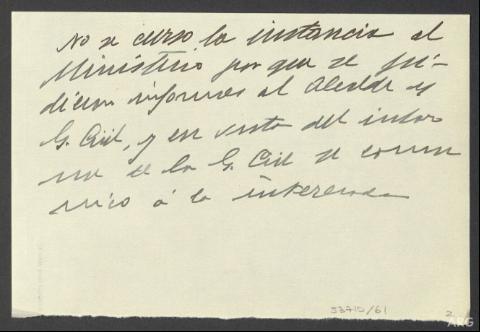 No se curso la instancia al
Ministerio por que se pi-
dieron informes al Alcalde y
G. Civil, y en vista del infor
me de la G. Civil se comu
nico á la interesada
53710/61
2
ARG